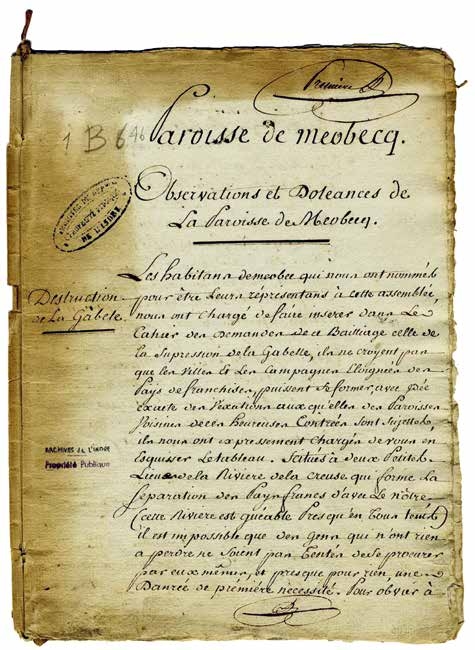 Premiere
1 B 646
Paroisse de meobecq.
Observations et Doleances de
La Paroisse de Meobecq.
Destruction
de La Gabele.
Les habitans demeobec qui nous ont nommés
pour être Leurs réprésentans à cette assemblée,
nous ont chargé de faire inserer dans Le
Cahier des Demandes de ce Bailliage celle de
la Supression de la Gabelle, ils ne croyent pas
que les Villes Et Les Campagnes Eloignées des
Pays de franchises, puissent se former, avec Idée
exacte des Vexations aux qu'elles des Paroisses
Voisines de ces heureuses Contrées Sont Sujettes,
ils nous ont expressement Chargés de vous en
Esquisser Le tableau. Scitués a deux Petites
Lieues de la Riviere de la creuse qui forme La
Separation des Pays francs d'avec Le nôtre
(cette Riviere est guéable Presqu'en Tous tems)
il est impossible que des gens qui n'ont rien
a perdre ne soient pas Tentés de Se procurer
par eux mêmes, et presque pour rien, une
Danrée de première nécessité. Pour obvier à
ARCHIVES DE L'INDRE
Propriété Publique